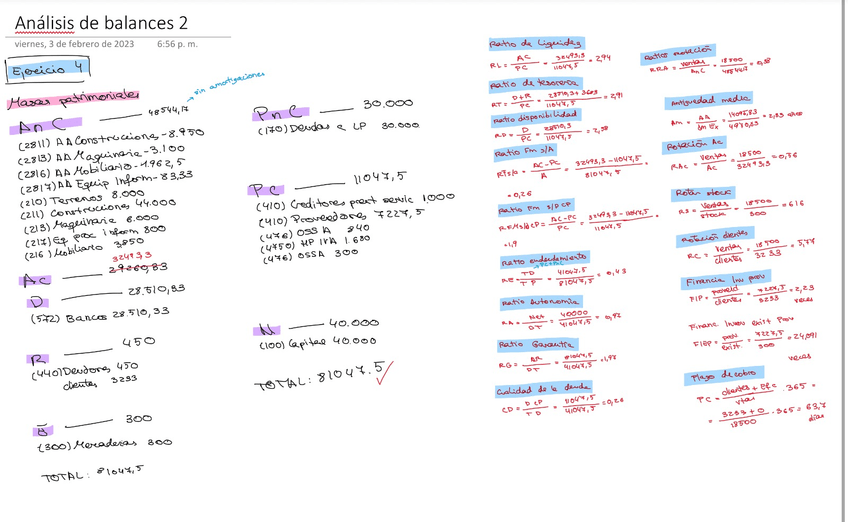 Análisis de balances 2
viernes, 3 de febrero de 2023 6:56 p. m.
Ejercicio 4
Masas patrimoniales
sin amortizaciones
AnC 48544,17
(2811) AA Construcciones - 8.950
(2813) AA Maquinaria - 3.100
(2816) AA Mobiliario - 1.962,5
(2817) AA Equip Inform - 83,33
(210) Terrenos 8.000
(211) Construciones 44.000
(213) Maquinaria 6.000
(217) Eq proc Inform 800
(216) Mobiliario 3850
32493,3
AC 29260,83
D 28.510,83
(572) Bancos 28.510,33
R 450
(440) Deudores 450
clientes 3233
300
(300) Mercaderías 300
TOTAL: 81047,5
PnC 30.000
(170) Deudas a LP 30.000
PC 11047,5
(410) Creditores prest servic 1.000
(410) Proveedores 7227,5
(476) OSSA 840
(4750) HP IVA 1.680
(476) OSSA 300
N 40.000
(100) Capital 40.000
TOTAL: 81047.5
Ratio de Liquidez
RL = AC/PC = 32493,3/11047,5 = 2,94
Ratio de tesorería
RT = D+R/PC = 28510,3+3683/11047,5 = 2,91
Ratio disponibilidad
RD = D/PC = 28510,3/11047,5 = 2,58
Ratio Fm s/A
RFs/a = AC-PC/A = 32493,3-11047,5/81047,5 =
= 0,26
Ratio Fm s/DCP
= AC-PC/PC = 32493,3-11047,5/11047,5 =
1,9
Ratio endeudamiento
RE = TD/TP = 41047,5/81047,5 = 0,43
Ratio Autonomía
RA = Net/DT = 40000/41047,5 = 0,92
Ratio Garantía
RG = AR/DT = 81047,5/41047,5 = 1,97
Cualidad de la deuda
CD = DCP/TD = 11047,5/41047,5 = 0,26
Ratio rotación
RRA = Ventas/AnC = 18500/48544,17 = 0,38
Antiguedad media
Rotación Ac
RAC = Ventas/AC = 18500/32493,3 = 0,56
Rotac stock
RS = Ventas/stock = 18500/300 = 616
Rotación clientes
RC = Ventas/clientes = 18500/3233 = 5,72
Financia Inv prov
FIP = proveed/clientes = 7227,5/3233 = 2,23
veces
Financ Invers exist Prov
FIEP = prov/exist = 7227,5/300 = 24,091
veces
Plazo de cobro
PC = clientes + Efc/vtas . 365 =
= 3233+0/18500 . 365 = 63,7
días